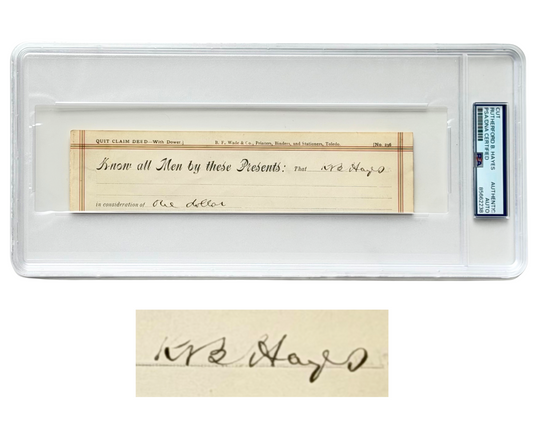 QUIT CLAIM DEED—With Dower.]
B. F. Wade & Co., Printers, Binders, and Stationers, Toledo.
Know all Men by these Presents: That RB Hayes
in consideration of one dollar
CUT
RUTHERFORD B. HAYES
PSA/DNA CERTIFIED
AUTHENTIC
AUTO
85662238
PSA
RB Hayes